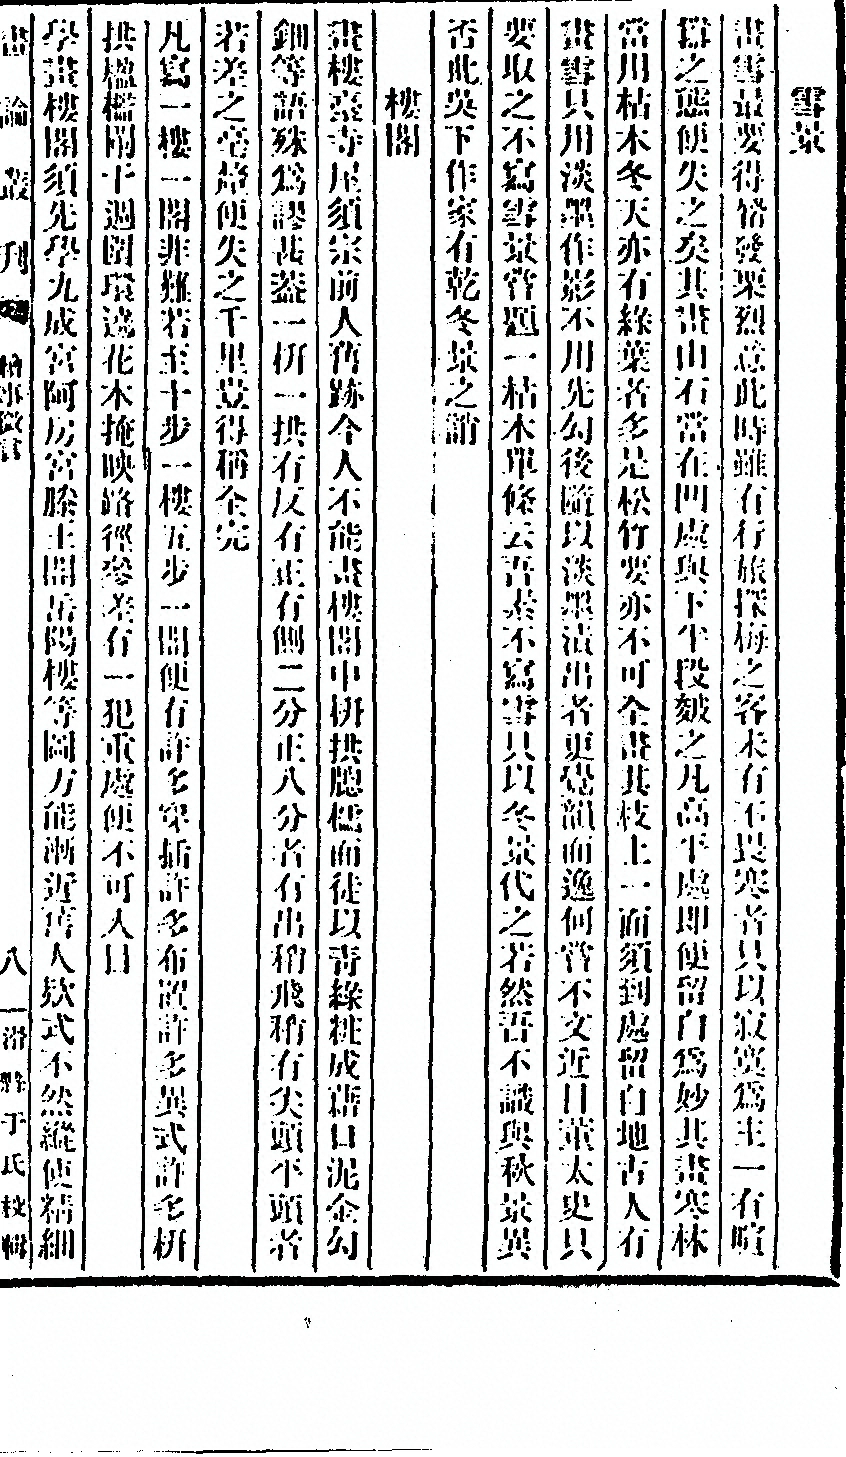 雪景
畫雪最要得觱發栗烈意此時雖有行旅探梅之客未有不畏寒者只以寂寞爲主一有喧
囂之態便失之矣其畫山石當在凹處與下半段皴之凡高平處即便留白爲妙其畫寒林
當用枯木冬天亦有綠葉者多是松竹要亦不可全畫其枝上一面須到處留白地古人有
畫雪只用淡墨作影不用先勾後隨以淡墨漬出者更覺韻而逸何嘗不文近日董太史只
要取之不寫雪景嘗題一枯木單條云吾素不寫雪只以冬景代之若然吾不識與秋景異
否此吳下作家有乾冬景之誚
樓閣
畫樓臺寺屋須宗前人舊跡今人不能畫樓閣中枅拱牕檽而徒以靑綠挑成藉口泥金勾
鈿等語殊爲謬甚蓋一枅一拱有反有正有側二分正八分者有出稍飛稍有尖頭平頭者
若差之毫釐便失之千里豈得稱全完
凡寫一樓一閣非難若至十步一樓五步一閣便有許多穿插許多布置許多異式許多枅
拱楹檻闌干週圍環遶花木掩映路徑參差有一犯重處便不可入目
學畫樓閣須先學九成宮阿房宮滕王閣岳陽樓等圖方能漸近舊人款式不然縱使精細
畫論叢刊 繪事微言 八 于氏校輯